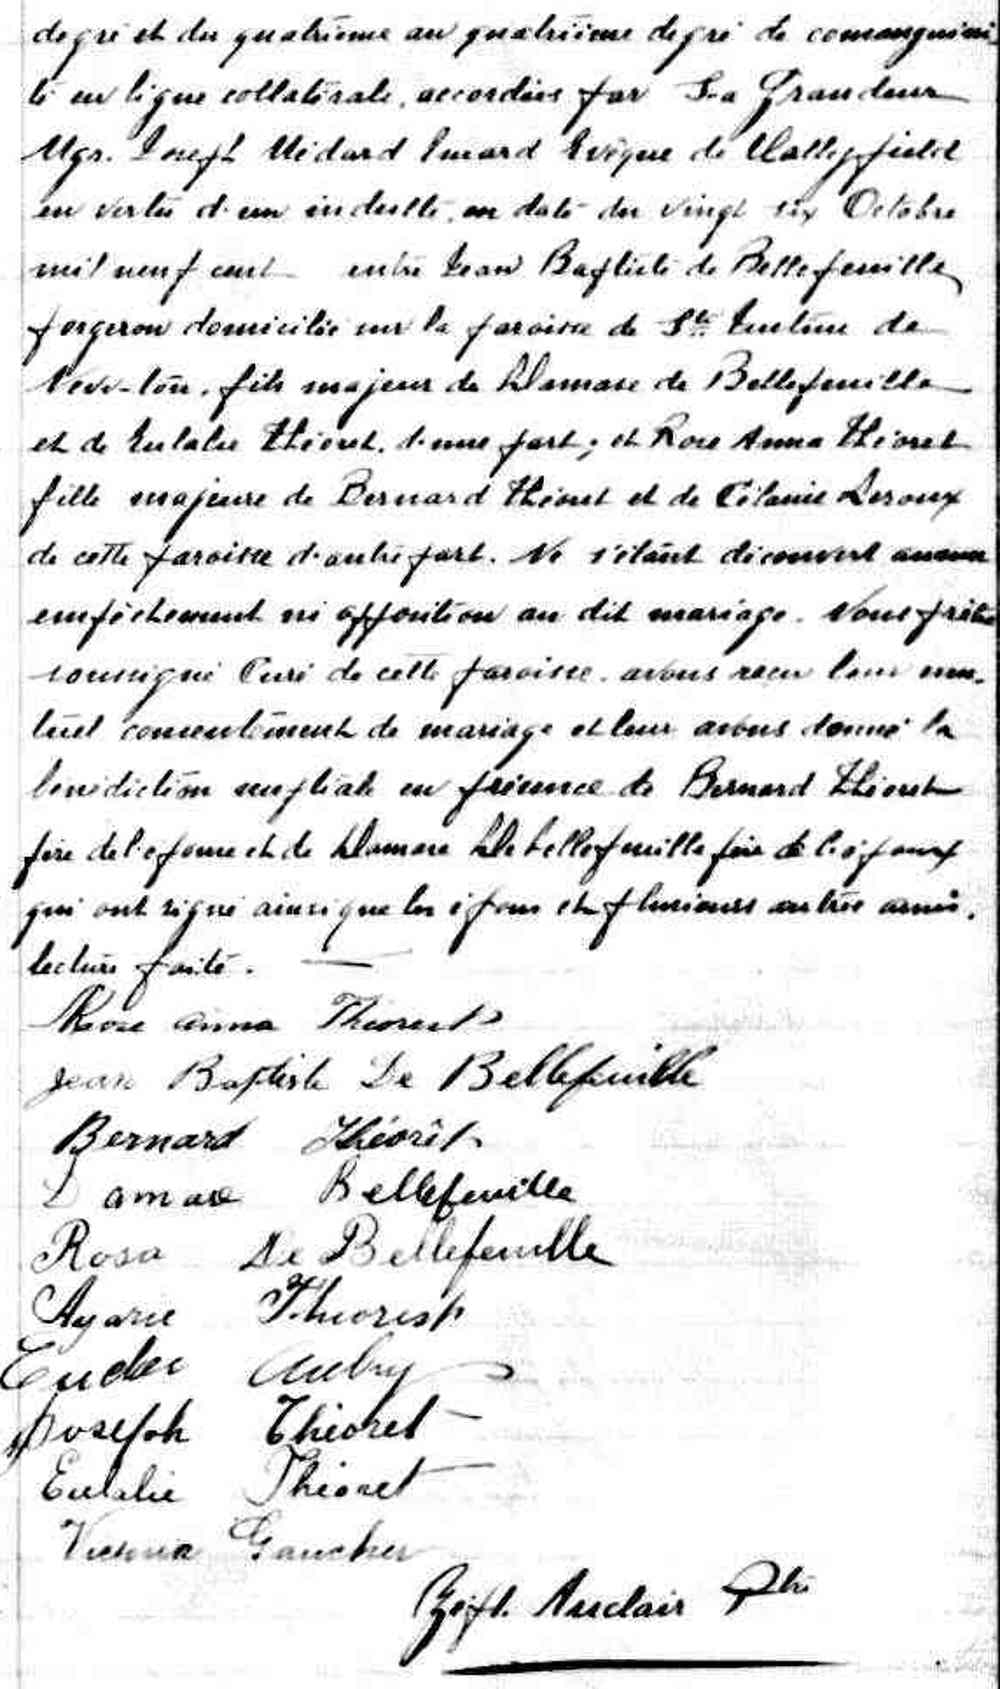 degré et du quatrième au quatrième degré de consanguini
té en ligne collatérale, accordées par Sa Grandeur
Mgr. Joseph Médard Emard Evêque de Valleyfield
en vertu d'un indulte, en date du vingt six Octobre
mil neuf cent entre Jean Baptiste de Bellefeuille
forgeron domicilié sur la paroisse de Ste.
New-ton, fils majeur de Damase de Bellefeuille
et de Eulalie Théoret, d'une part; et Rose Anna Théoret
fille majeure de Bernard Théoret et de Célanie Leroux
de cette paroisse d'autre part. Ne s'étant découvert aucun
empêchement ni opposition au dit mariage. Nous prêtre
soussigné Curé de cette paroisse, avons reçu leur mu-
tuel consentement de mariage et leur avons donné la
bénédiction nuptiale en présence de Bernard Théoret
père de l'épouse et de Damase De bellefeuille père de l'époux
qui ont signé ainsi que les époux et plusieurs autres amis.
lecture faite.
Rose anna Theoret
Jean Baptiste De Bellefeuille
Bernard Théorêt
Damase Bellefeuille
Rosa De Bellefeuille
Theoret
Aubry
Joseph Théoret
Eulalie Théoret
Gaucher
Zéph. Auclair Ptre